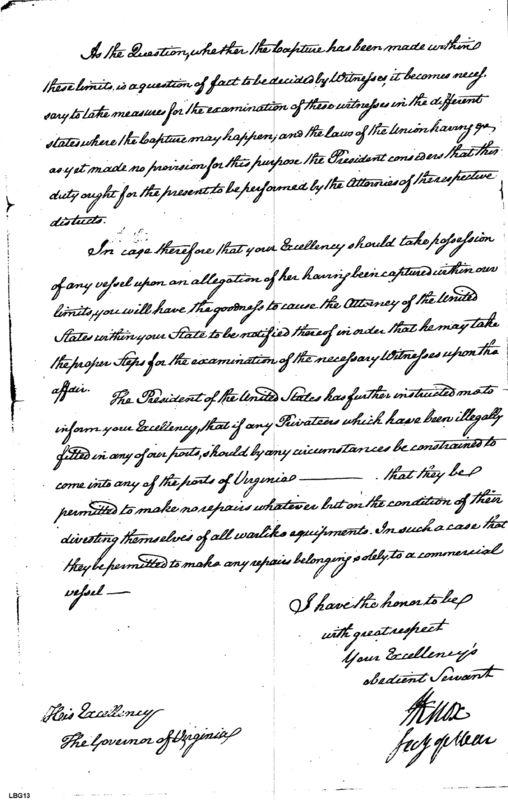 As the Question, whether the Capture has been made within
these limits, is a question of fact to be decided by Witnesses, it becomes neces.
sary to take measures for the examination of these witnesses in the different
states where the Capture may happen; and the laws of the Union having
as yet made no provision for this purpose the President considers that this
duty ought for the present to be performed by the Attornies of the respective
districts.
In case therefore that your Excellency should take possession
of any vessel upon an allegation of her having been captured within our
limits, you will have the goodness to cause the Attorney of the United
States within your State to be notified thereof in order that he may take
the proper Steps for the examination of the necessary Witnesses upon the
affair.
The President of the United States has further instructed me to
inform your Excellency, that if any Privateers which have been illegally
fitted in any of our ports, should by any circumstances be constrained to
come into any of the ports of Virginia ——— that they be
permitted to make no repairs whatever but on the condition of their
divesting themselves of all warlike equipments. In such a case that
they be permitted to make any repairs belonging solely, to a commercial
vessel —
I have the honor to be
with great respect
Your Excellency's
obedient Servant
HKnox
Secy of War
His Excellency
The Governor of Virginia
LBG13